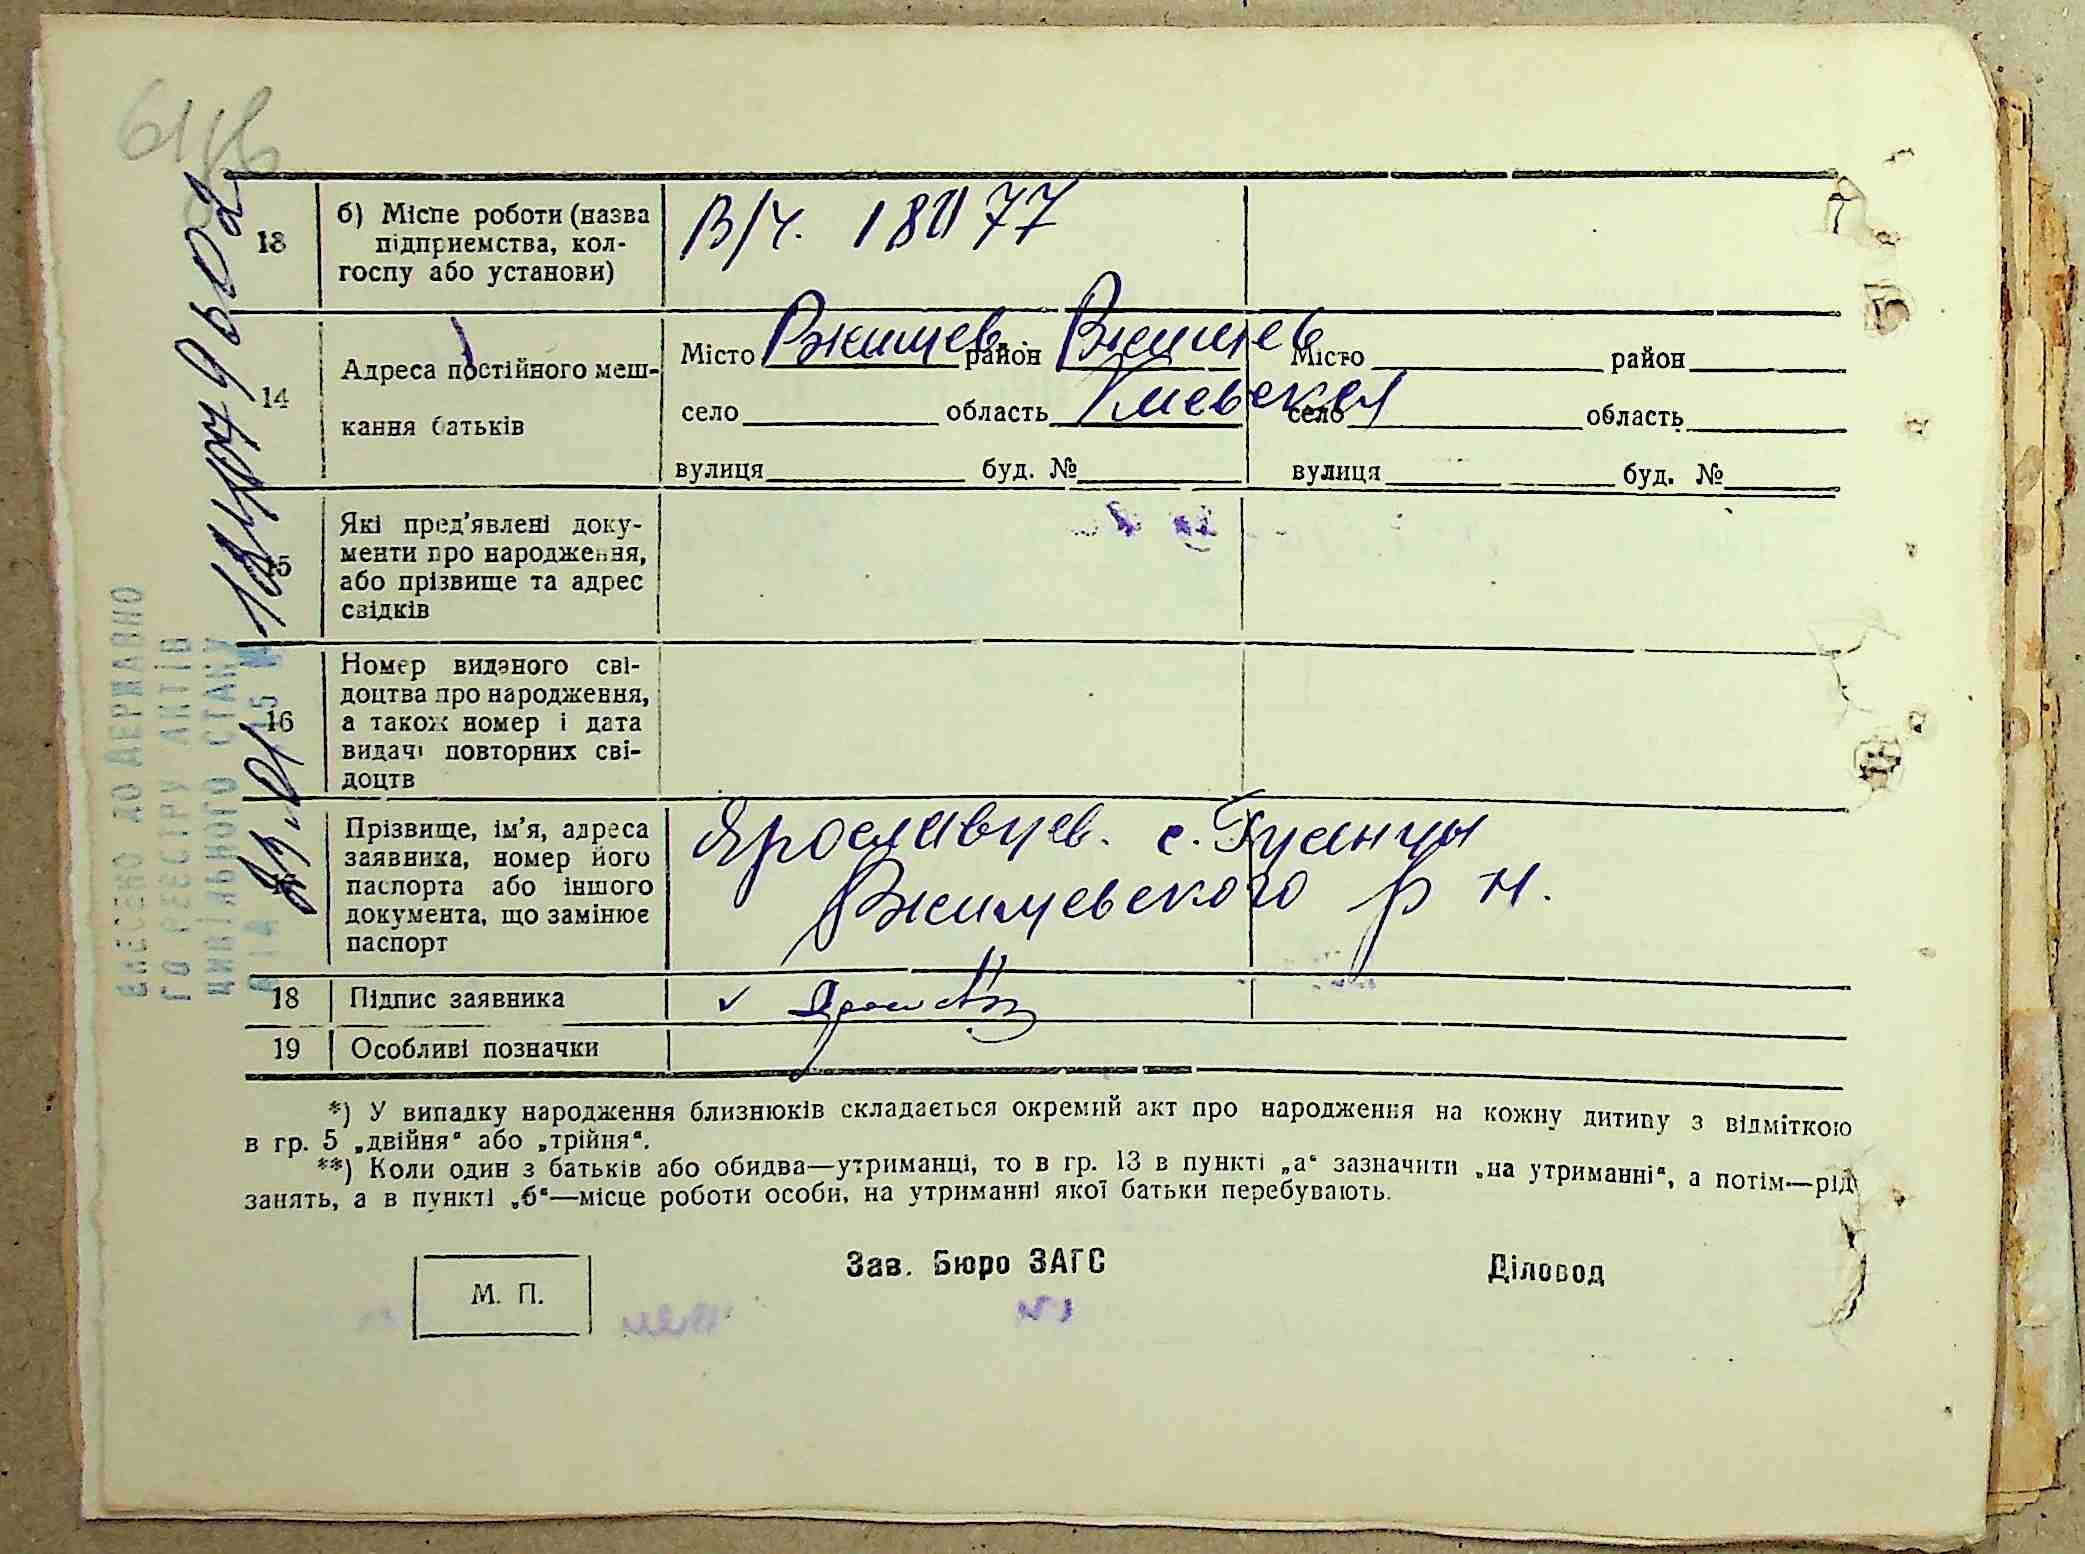 13
б) Місце роботи (назва
підприємства, кол-
госпу або установи)
В/ч. 18077
14
Адреса постійного меш-
кання батьків
Місто Ржищев район Ржищев
село область Киевская
вулиця буд. №
Місто район
село область
вулиця буд. №
15
Які пред'явлені доку-
менти про народження,
або прізвище та адрес
свідків
16
Номер виданого сві-
доцтва про народження,
а також номер і дата
видачі повторних сві-
доцтв
Прізвище, ім'я, адреса
заявника, номер його
паспорта або іншого
документа, що замінює
паспорт
Ярославцев. с. Гусинцы
Ржищевского р н.
18
Підпис заявника
19
Особливі позначки
*) У випадку народження близнюків складається окремий акт про народження на кожну дитину з відміткою
в гр. 5 „двійня“ або „трійня“.
**) Коли один з батьків або обидва—утриманці, то в гр. 13 в пункті „а“ зазначити „на утриманні“, а потім—рід
занять, а в пункті „б“—місце роботи особи, на утриманні якої батьки перебувають.
М. П.
Зав. Бюро ЗАГС
Діловод
ВНЕСЕНО ДО ДЕРЖАВНО
ГО РЕЄСТРУ АКТІВ
ЦИВІЛЬНОГО СТАНУ